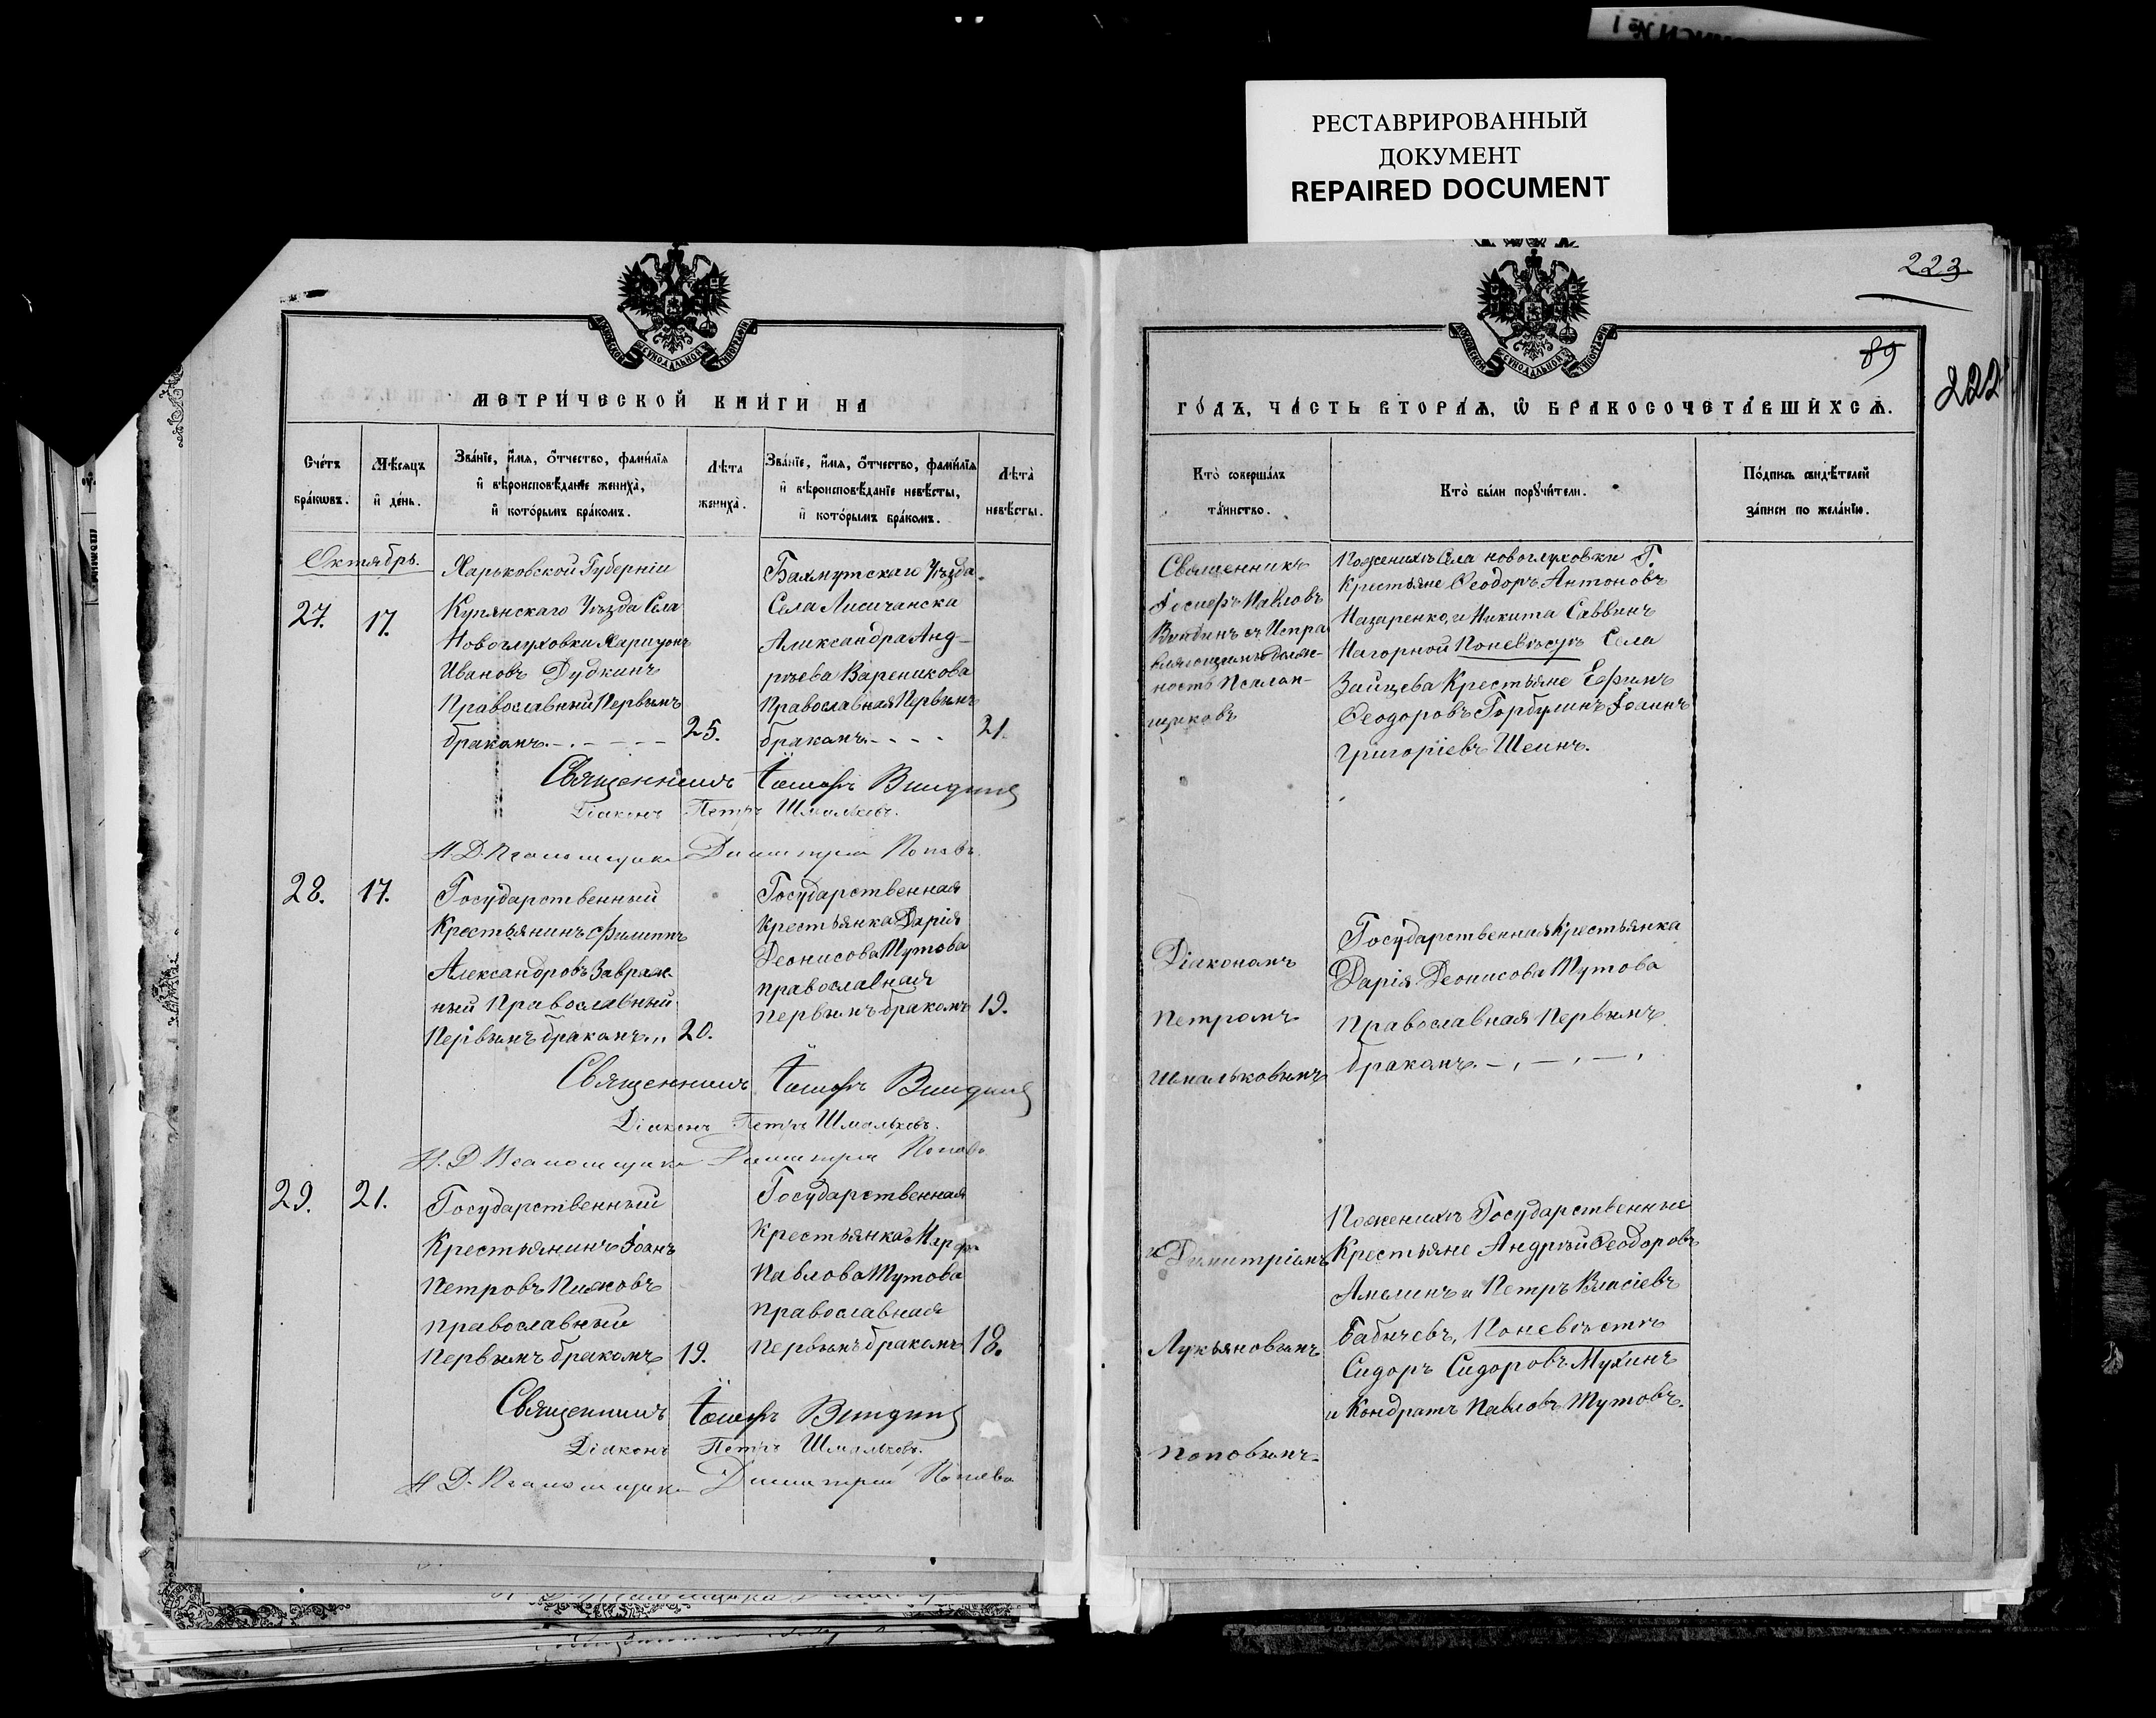 РЕСТАВРИРОВАННЫЙ
ДОКУМЕНТ
REPAIRED DOCUMENT
223
89
222
МЕТРИ́ЧЕСКОЙ КНИ́ГИ НА
Сче́тъ бра́ковъ.
Мѣ́сяцъ и де́нь.
Зва́нїе, и҆́мя, ѻ҆́тчество, фами́лїя
и҆ вѣроисповѣ́данїе жениха̀,
и҆ кото́рымъ бра́комъ.
Лѣта жениха̀.
Зва́нїе, и҆́мя, ѻ҆́тчество, фами́лїя
и҆ вѣроисповѣ́данїе невѣ́сты,
и҆ кото́рымъ бра́комъ.
Лѣта̀ невѣ́сты.
Октябрь.
27.
17.
Харьковской Губерніи
Купянскаго Уѣзда Села
Новоглуховки Харитонъ
Ивановъ Дудкинъ
Православный Первымъ
бракомъ.
25.
Бахмутскаго Уѣзда
Села Лисичанска
Александра Анд-
рѣева Вареникова
Православная Первымъ
бракомъ.
21.
Священникъ Іосифъ Виидинъ
Діаконъ Петръ Шмальковъ.
И. Д. Псаломщика Димитрій Поповъ
28.
17.
Государственный
Крестьянинъ Филиппъ
Александровъ Завраж-
ный Православный
Первымъ бракомъ...
20.
Государственная
Крестьянка Дарія
Деонисова Тутова
православная
первымъ бракомъ
19.
Священникъ Іосифъ Виидинъ
Діаконъ Петръ Шмальковъ.
И. Д. Псаломщика Димитрій Поповъ
29.
21.
Государственный
Крестьянинъ Іоанъ
Петровъ
православный
Первымъ бракомъ
19.
Государственная
Крестьянка Марфа
Павлова Тутова
православная
первымъ бракомъ
18.
Священникъ Іосифъ Виидинъ
Діаконъ Петръ Шмальковъ.
И. Д. Псаломщика Димитрій Поповъ
ГО́ДЪ, ЧА́СТЬ ВТОРА́Ѧ, Ѡ҆ БРАКОСОЧЕТА́ВШИХСѦ.
Кто̀ соверша́лъ
та́инство.
Кто̀ бы́ли порꙋчи́тели.
По́дпись свидѣ́телей
за́писи по жела́нїю.
Священникъ
Іосифъ Павловъ
Виидинъ съ Испра
вляющимъ долж-
ность Псалом-
щиковъ
Пожениху Села Новоглуховки Г.
Крестьяне Ѳеодоръ Антоновъ
Назаренко, и Никита Саввинъ
Нагорной Поневѣсту Села
Зайцева Крестьяне Ефимъ
Ѳеодоровъ Горбулинъ Іоаннъ
Григоріевъ Шеинъ.
Діакономъ
Петромъ
Шмальковымъ
Государственная Крестьянка
Дарія Деонисова Тутова
Православная Первымъ
бракомъ.
и Димитріемъ
Лукьяновымъ
Поповымъ
Пожениху Государственные
Крестьяне Андрей Ѳеодоровъ
Амелинъ и Петръ Власіевъ
Бабичевъ, Поневѣстѣ
Сидоръ Сидоровъ Мухинъ
и Кондратъ Павловъ Тутовъ.